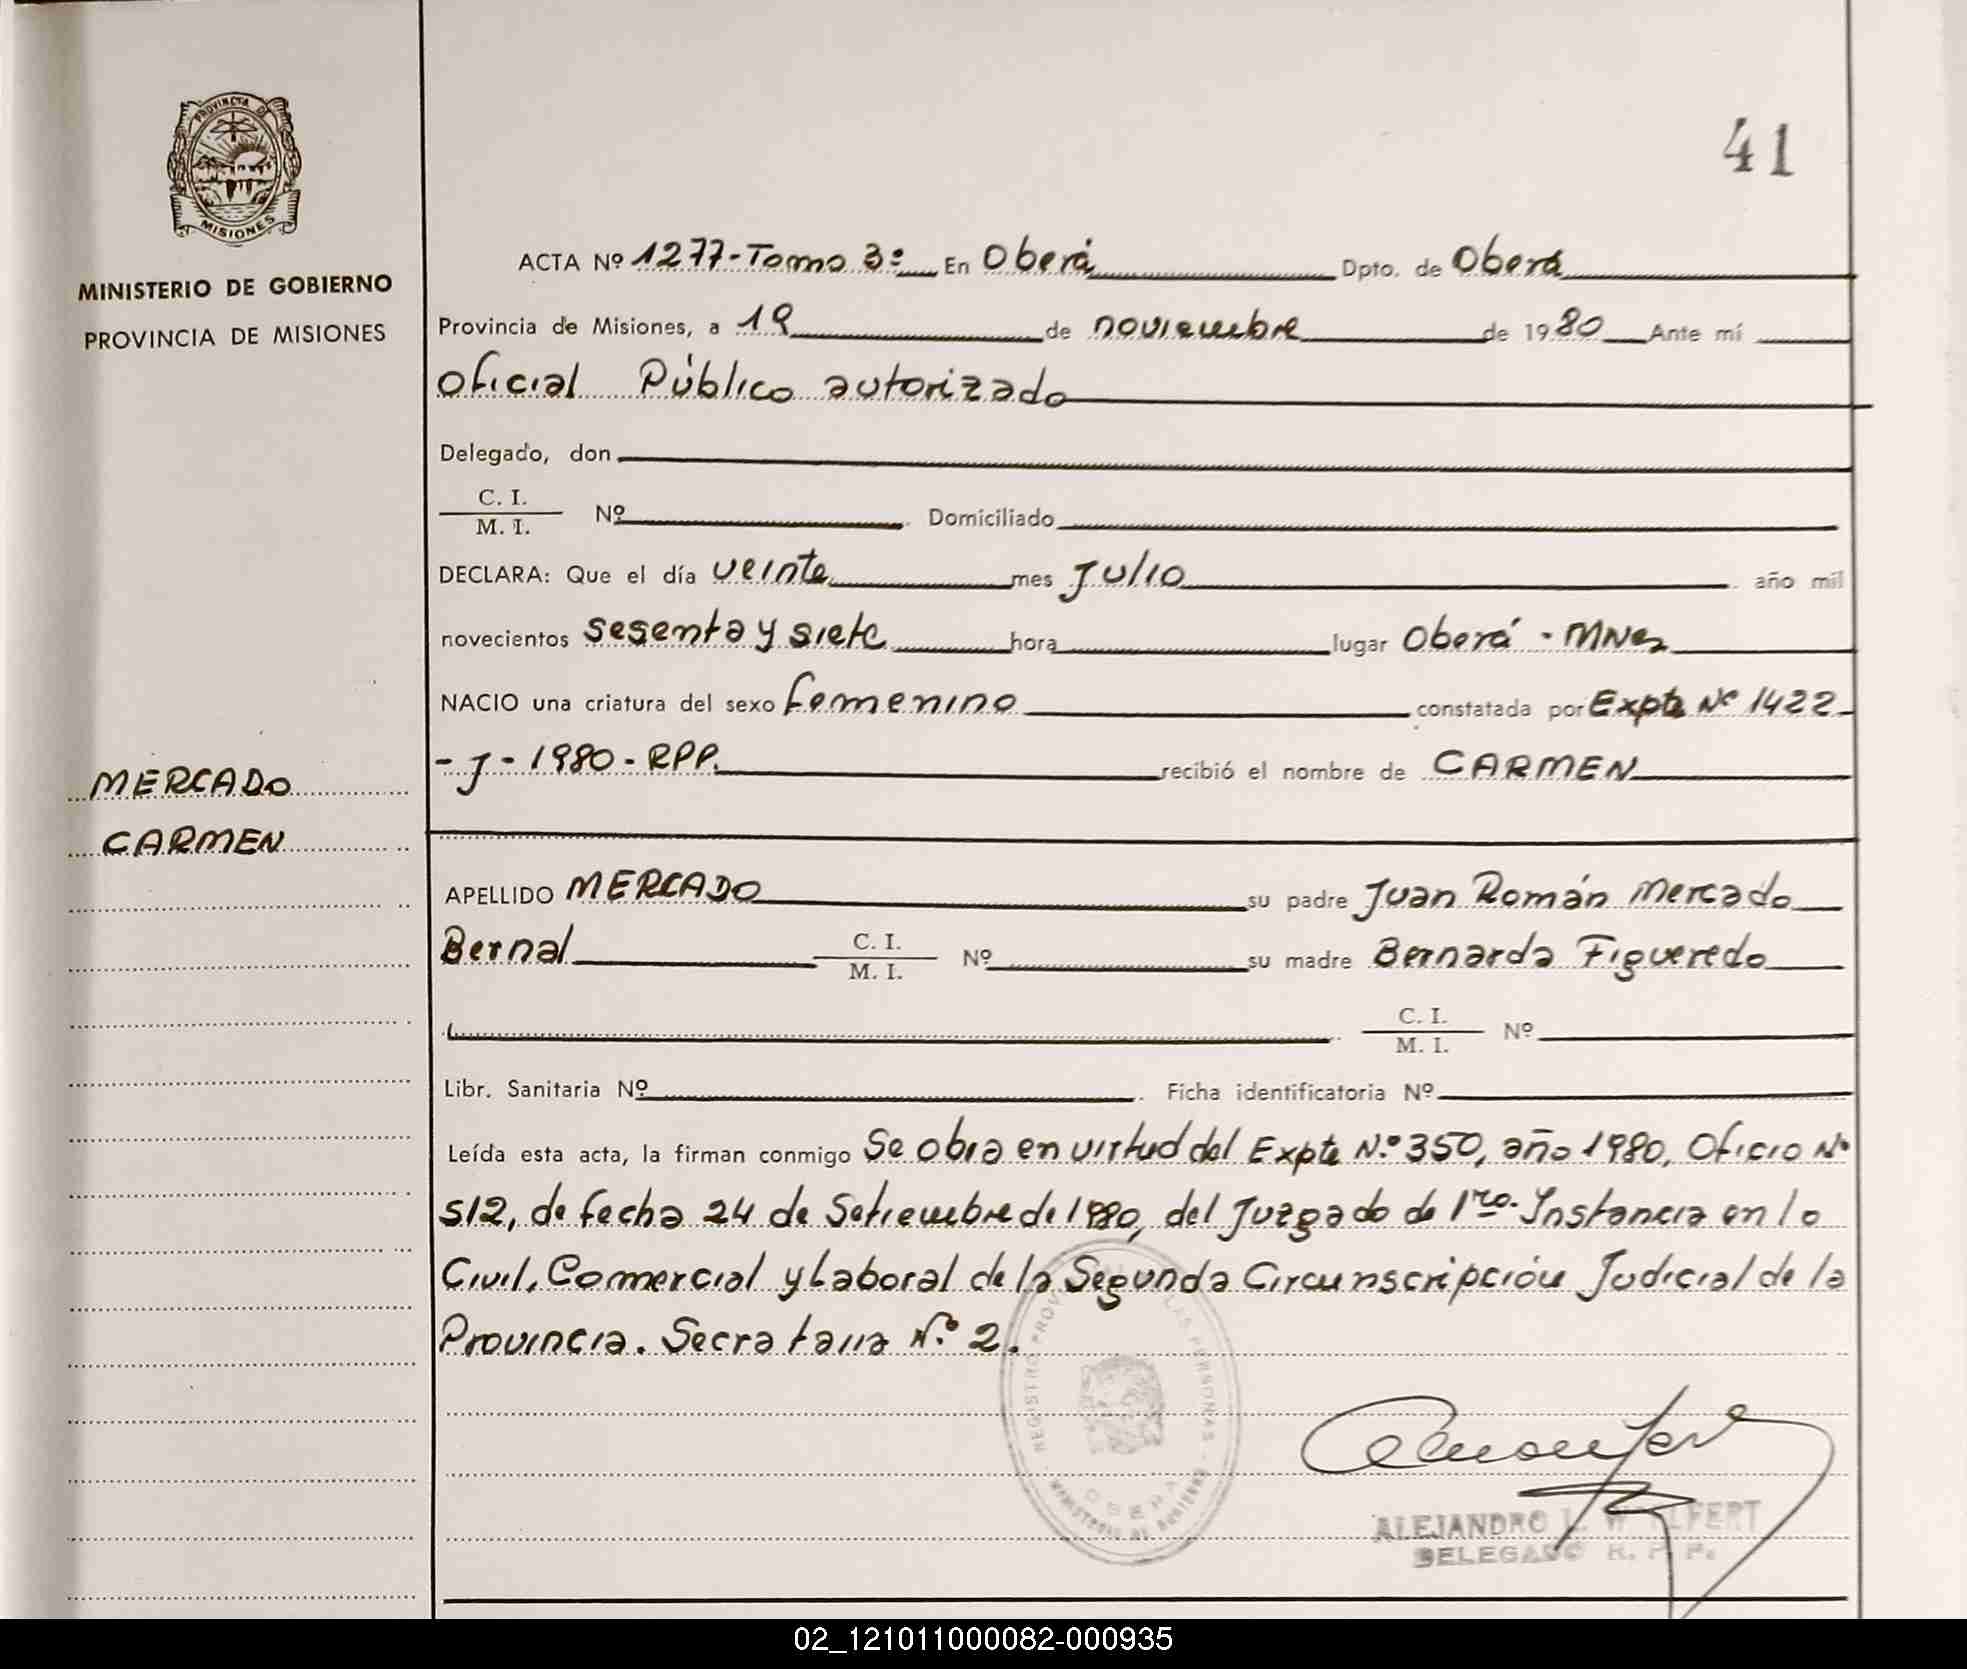 PROVINCIA DE
MISIONES
MINISTERIO DE GOBIERNO
PROVINCIA DE MISIONES
MERCADO
CARMEN
41
ACTA Nº 1277-Tomo 3º En Oberá Dpto. de Oberá
Provincia de Misiones, a 19 de noviembre de 1980 Ante mí
Oficial Público autorizado
Delegado, don
C. I.
M. I. Nº Domiciliado
DECLARA: Que el día veinte mes Julio año mil
novecientos sesenta y siete hora lugar Oberá - MNes
NACIO una criatura del sexo femenino constatada por Expte Nº 1422
- J - 1980 - RPP. recibió el nombre de CARMEN
APELLIDO MERCADO su padre Juan Román Mercado
Bernal C. I. M. I. Nº su madre Bernarda Figueredo
C. I. M. I. Nº
Libr. Sanitaria Nº Ficha identificatoria Nº
Leída esta acta, la firman conmigo Se obra en virtud del Expte Nº 350, año 1980, Oficio Nº
512, de fecha 24 de Setiembre de 1980, del Juzgado de 1ra. Instancia en lo
Civil, Comercial y Laboral de la Segunda Circunscripción Judicial de la
Provincia. Secretaria Nº 2.
REGISTRO PROV LAS PERSONAS
MINISTERIO DE GOBIERNO
OBERA
ALEJANDRO L.
DELEGADO R. P. P.
02_121011000082-000935